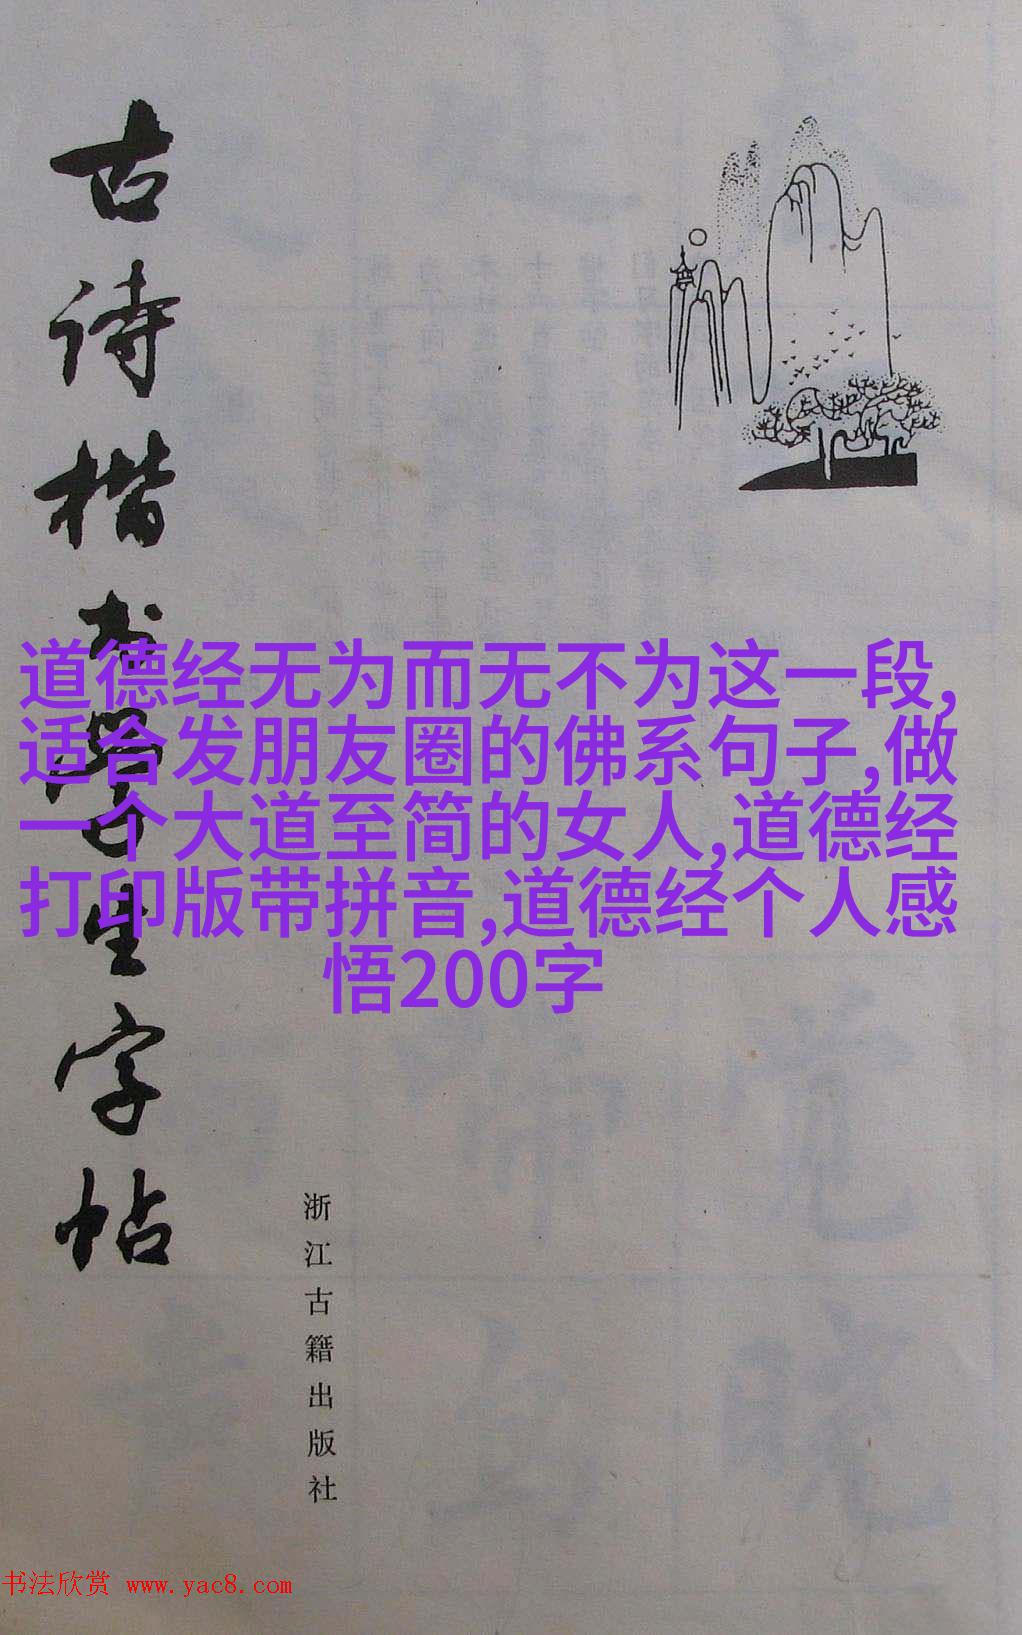 古诗楷书学生字帖
道德经无为而无不为这一段,
适合发朋友圈的佛系句子,做
一个大道至简的女人,道德经
打印版带拼音,道德经个人感
悟200字
浙江古籍出版社
书法欣赏 www.yac8.com